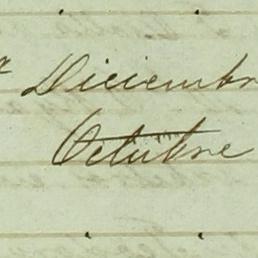 Diciembr
Octubre